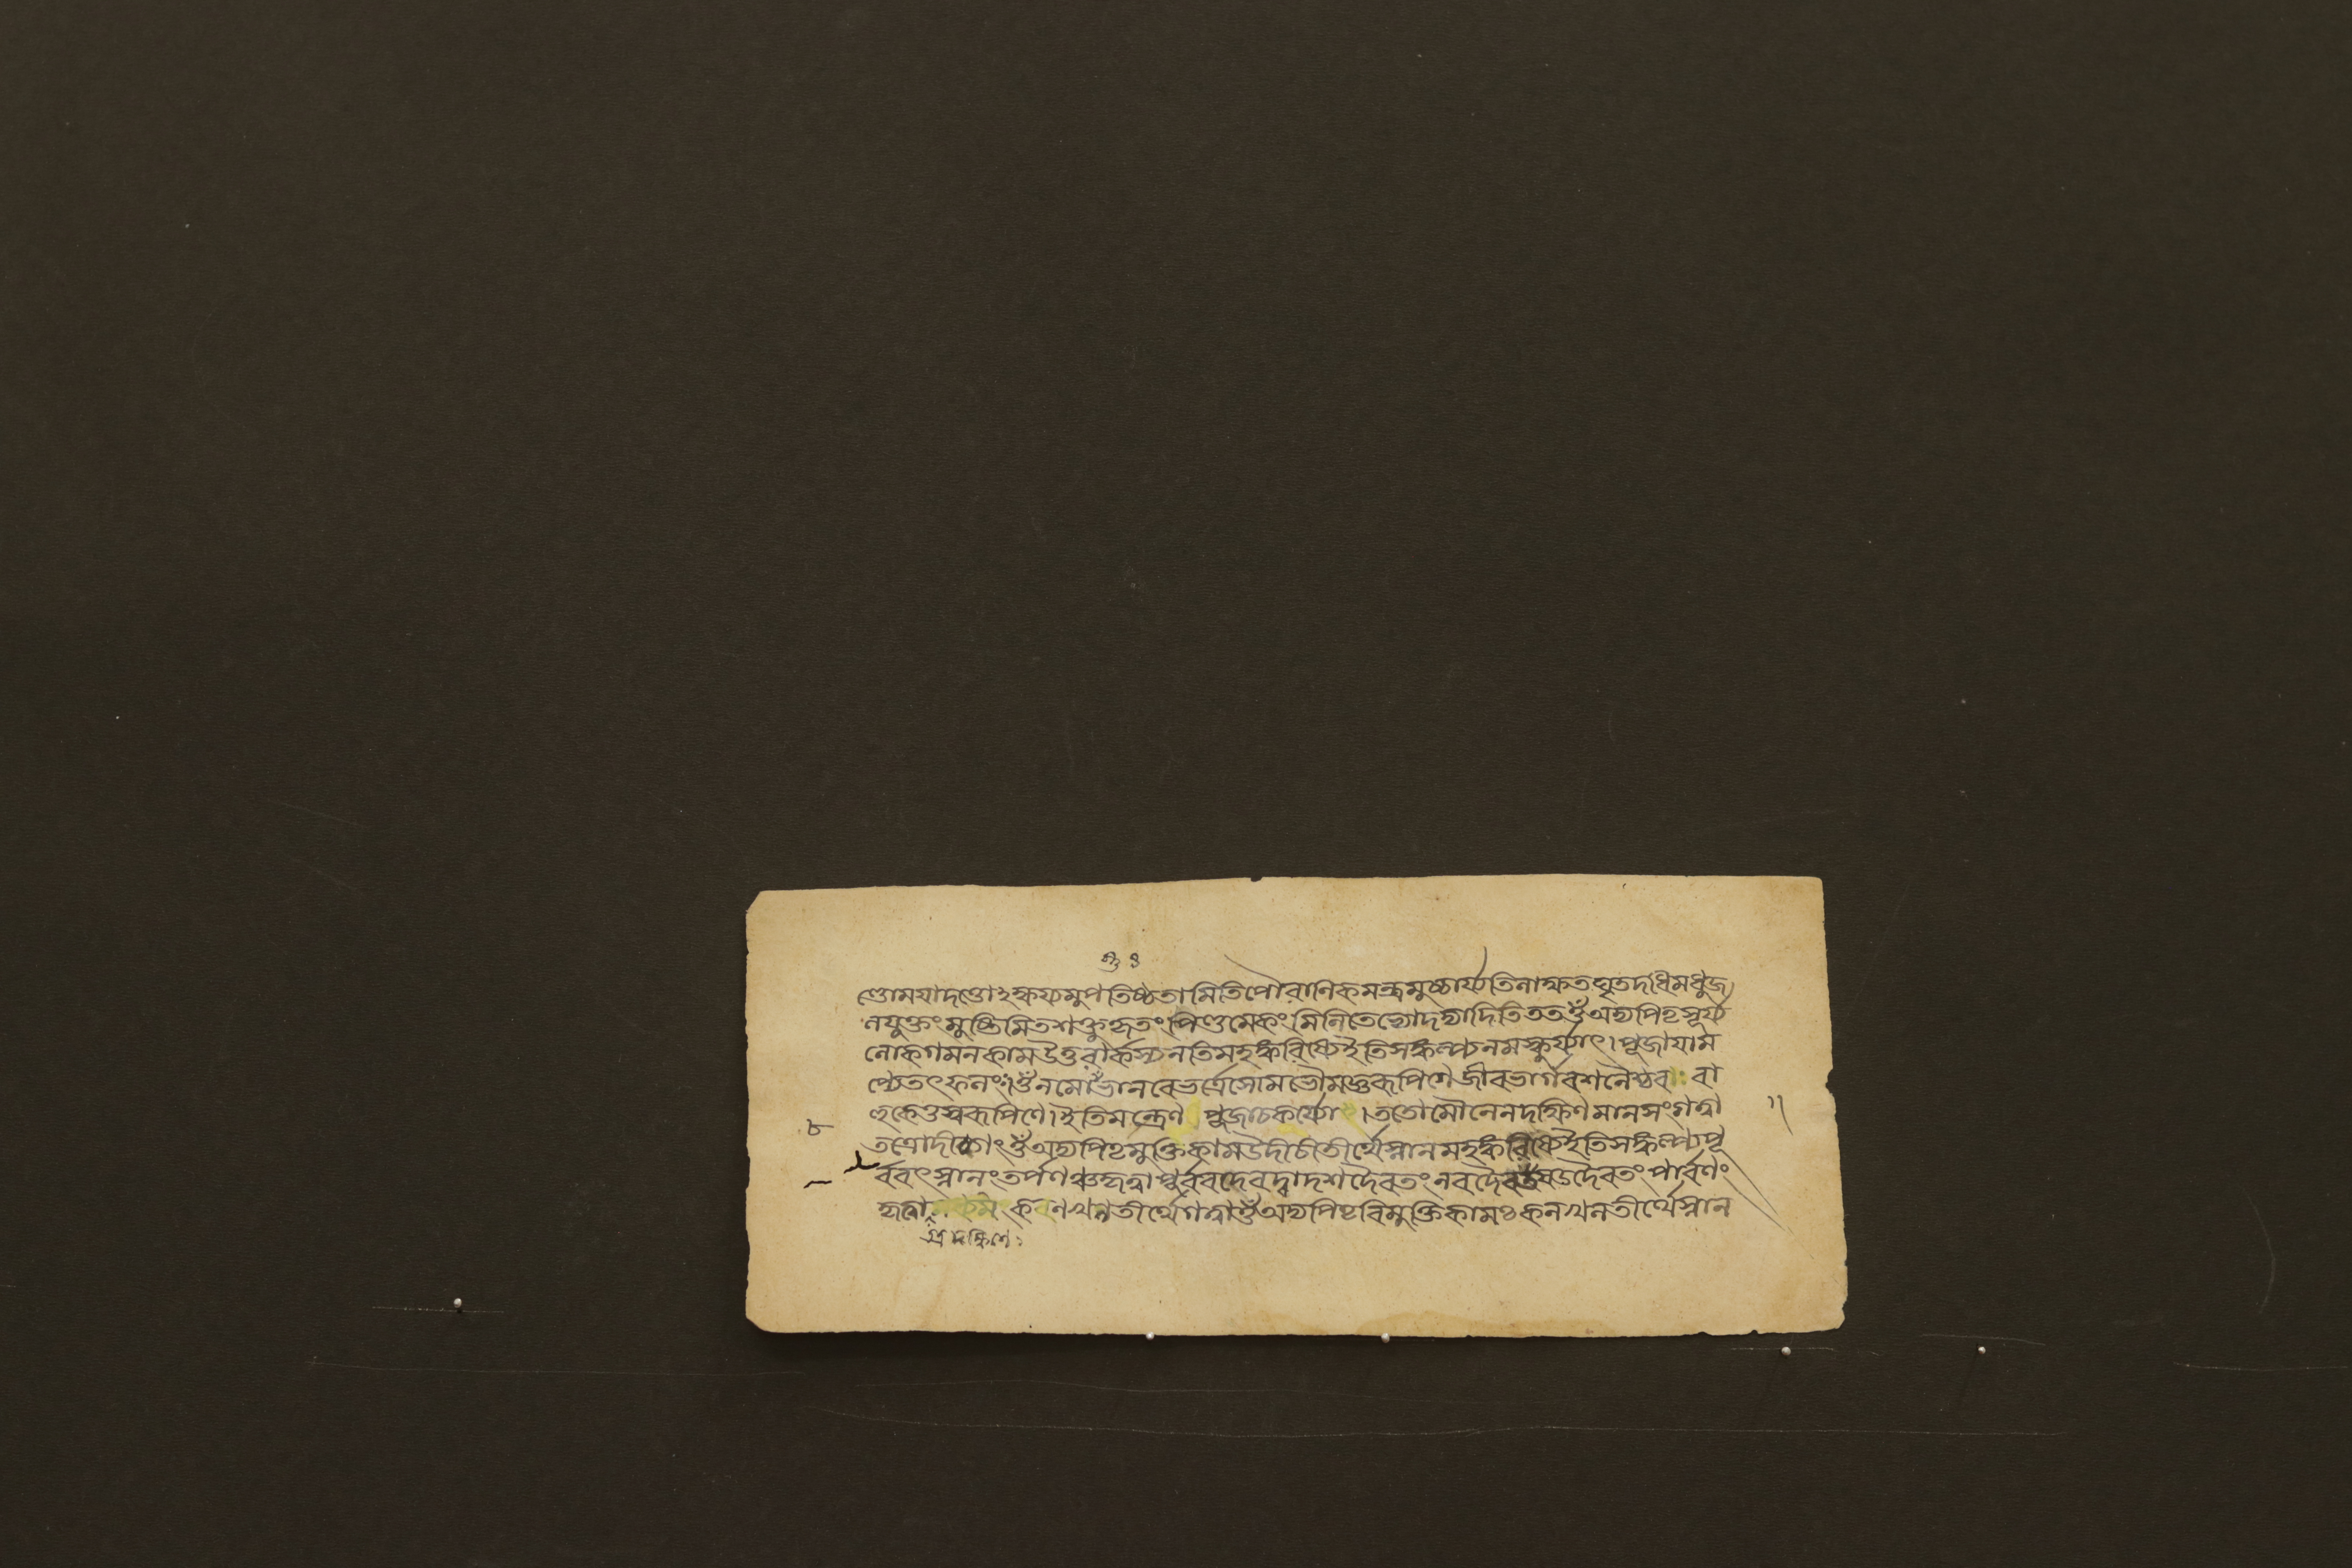 ণ্ডোময়াদণ্ডোঽক্ষয়্যমুপতিষ্ঠতামিতিপৌরানিকমন্ত্রমুচ্চার্য্যতিলাক্ষতঘৃতদধিমধুজ
লযুক্তংমুষ্টিমিতশক্তুকৃতংপিণ্ডমেকং দদ্যাদিতিততওঁঅদ্যপিতৃসূর্য্য
লোকগমনকামউত্তরার্কস্যনতিমহংকরিষ্যেইতিসঙ্কল্প্যনমস্কুর্য্যাৎ।পূজায়াম
প্যেতৎফলং।ওঁনমোভানবেভর্ত্রেসোমভৌমজ্ঞরূপিণেজীবভার্গবশনৈশ্চর রা
হুকেতুস্বরূপিণে।ইতিমন্ত্রেণ পূজাচকার্য্যা।ততোমৌনেনদক্ষিণমানসংগত্বা
তত্রোদীচ্যাংওঁঅদ্যপিতৃমুক্তিকামউদীচীতীর্থেস্নানমহংকরিষ্যেইতিসঙ্কল্প্যপূ
র্ব্ববৎস্নানংতর্পণঞ্চকৃত্বাপূর্ব্ববদেবদ্বাদশদৈবতংনবদৈবতংষড্দৈবতংপার্ব্বণং
কৃত্বা কনখলতীর্থেগত্বাওঁঅদ্যপিতৃবিমুক্তিকামঃকনখলতীর্থেস্নান
দক্ষিণে